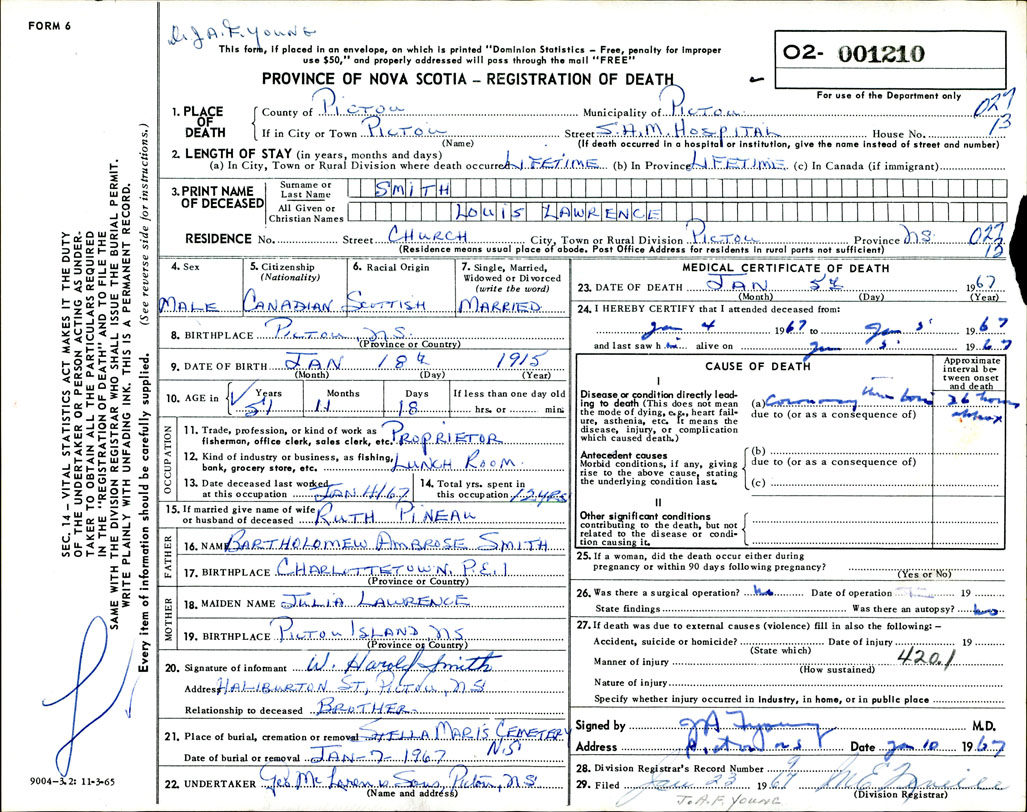 FORM 6
Dr. J.A.F. YOUNG
This form, if placed in an envelope, on which is printed "Dominion Statistics – Free, penalty for improper
use $50," and properly addressed will pass through the mail "FREE"
PROVINCE OF NOVA SCOTIA – REGISTRATION OF DEATH
02- 001210
For use of the Department only
027
13
1. PLACE OF DEATH
County of PICTOU Municipality of PICTOU
If in City or Town PICTOU Street S.H.M. HOSPITAL House No.
(Name) (If death occurred in a hospital or institution, give the name instead of street and number)
2. LENGTH OF STAY (in years, months and days)
(a) In City, Town or Rural Division where death occurred LIFETIME (b) In Province LIFETIME (c) In Canada (if immigrant)
3. PRINT NAME OF DECEASED
Surname or Last Name SMITH
All Given or Christian Names LOUIS LAWRENCE
RESIDENCE No. Street CHURCH City, Town or Rural Division PICTOU Province NS 027
(Residence means usual place of abode. Post Office Address for residents in rural parts not sufficient) 13
4. Sex
MALE
5. Citizenship
(Nationality)
CANADIAN
6. Racial Origin
SCOTTISH
7. Single, Married,
Widowed or Divorced
(write the word)
MARRIED
8. BIRTHPLACE PICTOU N.S.
(Province or Country)
9. DATE OF BIRTH JAN 18th 1915
(Month) (Day) (Year)
10. AGE in Years Months Days If less than one day old
51 11 18 hrs. or min.
OCCUPATION
11. Trade, profession, or kind of work as
fisherman, office clerk, sales clerk, etc. PROPRIETOR
12. Kind of industry or business, as fishing,
bank, grocery store, etc. LUNCH ROOM.
13. Date deceased last worked
at this occupation JAN 4/67
14. Total yrs. spent in
this occupation 12 YRS
15. If married give name of wife
or husband of deceased RUTH PINEAU
FATHER
16. NAME BARTHOLOMEW AMBROSE SMITH
17. BIRTHPLACE CHARLOTTETOWN, P.E.I
(Province or Country)
MOTHER
18. MAIDEN NAME JULIA LAWRENCE
19. BIRTHPLACE PICTOU ISLAND NS
(Province or Country)
20. Signature of informant W. Harold Smith
Address HALIBURTON ST, PICTOU, NS
Relationship to deceased BROTHER.
21. Place of burial, cremation or removal STELLA MARIS CEMETERY
N.S
Date of burial or removal JAN-7-1967
22. UNDERTAKER Geo McLaren & Sons, Pictou, NS
(Name and address)
MEDICAL CERTIFICATE OF DEATH
23. DATE OF DEATH JAN 5th 1967
(Month) (Day) (Year)
24. I HEREBY CERTIFY that I attended deceased from:
Jan 4 1967 to Jan 5 1967
and last saw him alive on Jan 5 1967
CAUSE OF DEATH
Approximate
interval be-
tween onset
and death
I
Disease or condition directly lead-
ing to death (This does not mean
the mode of dying, e.g., heart fail-
ure, asthenia, etc. It means the
disease, injury, or complication
which caused death.)
(a) Coronary thrombosis 36 hours
approx
due to (or as a consequence of)
Antecedent causes
Morbid conditions, if any, giving
rise to the above cause, stating
the underlying condition last.
(b)
due to (or as a consequence of)
(c)
II
Other significant conditions
contributing to the death, but not
related to the disease or condi-
tion causing it.
25. If a woman, did the death occur either during
pregnancy or within 90 days following pregnancy?
(Yes or No)
26. Was there a surgical operation? no Date of operation 19
State findings Was there an autopsy? no
27. If death was due to external causes (violence) fill in also the following:–
Accident, suicide or homicide? Date of injury 19
(State which)
Manner of injury 420.1
(How sustained)
Nature of injury
Specify whether injury occurred in industry, in home, or in public place
Signed by JA F Young M.D.
Address Pictou NS Date Jan 10 1967
28. Division Registrar's Record Number 9
29. Filed Jan 23 1967
(Division Registrar)
J.A.F. YOUNG
SEC. 14 – VITAL STATISTICS ACT MAKES IT THE DUTY
OF THE UNDERTAKER OR PERSON ACTING AS UNDER-
TAKER TO OBTAIN ALL THE PARTICULARS REQUIRED
IN THE "REGISTRATION OF DEATH" AND TO FILE THE
SAME WITH THE DIVISION REGISTRAR WHO SHALL ISSUE THE BURIAL PERMIT.
WRITE PLAINLY WITH UNFADING INK. THIS IS A PERMANENT RECORD.
Every item of information should be carefully supplied. (See reverse side for instructions.)
9004-3.2: 11-3-65